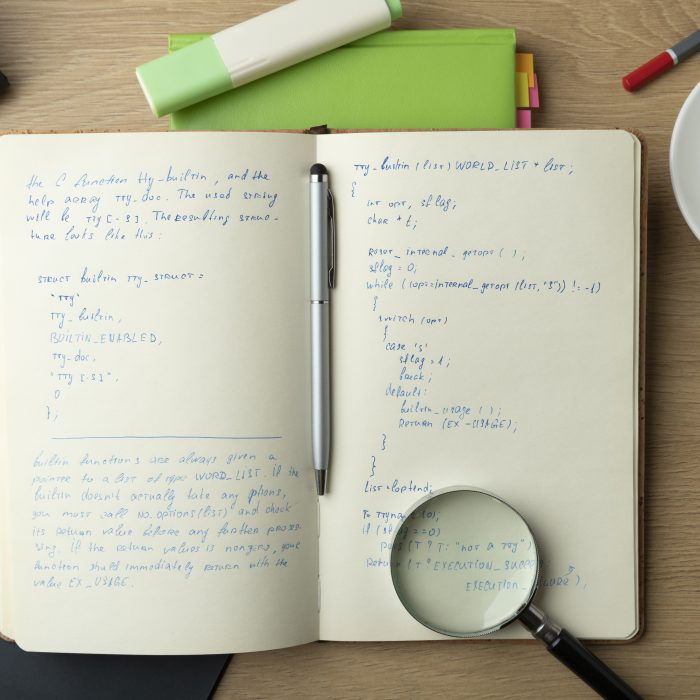 the C function tty_builtin, and the
help array tty_doc. The used string
will be tty [-s]. The resulting struc-
ture looks like this:
struct builtin tty_struct =
"tty"
tty_builtin,
BUILTIN_ENABLED,
tty_doc,
"tty [-s]",
0
};
builtin functions are always given a
pointer to a list of type WORD_LIST. if the
builtin doesn't actually take any options,
you must call no_options(list) and check
its return value before any further proces-
sing. If the return values is nonzero, your
function should immediately return with the
value EX_USAGE.
tty_builtin (list) WORLD_LIST * list;
{
int opt, sflag;
char * t;
reset_internal_getopt ( );
sflag = 0;
while ((opt=internal_getopt (list, "s")) != -1)
{
switch (opt)
{
case 's'
sflag = 1;
break;
default:
builtin_usage ( );
return (EX-USAGE);
}
}
list = loptend;
ttyname (0);
if (sflag == 0)
puts (t ? t: "not a tty")
return (t ? EXECUTION_SUCC
EXECUTION_